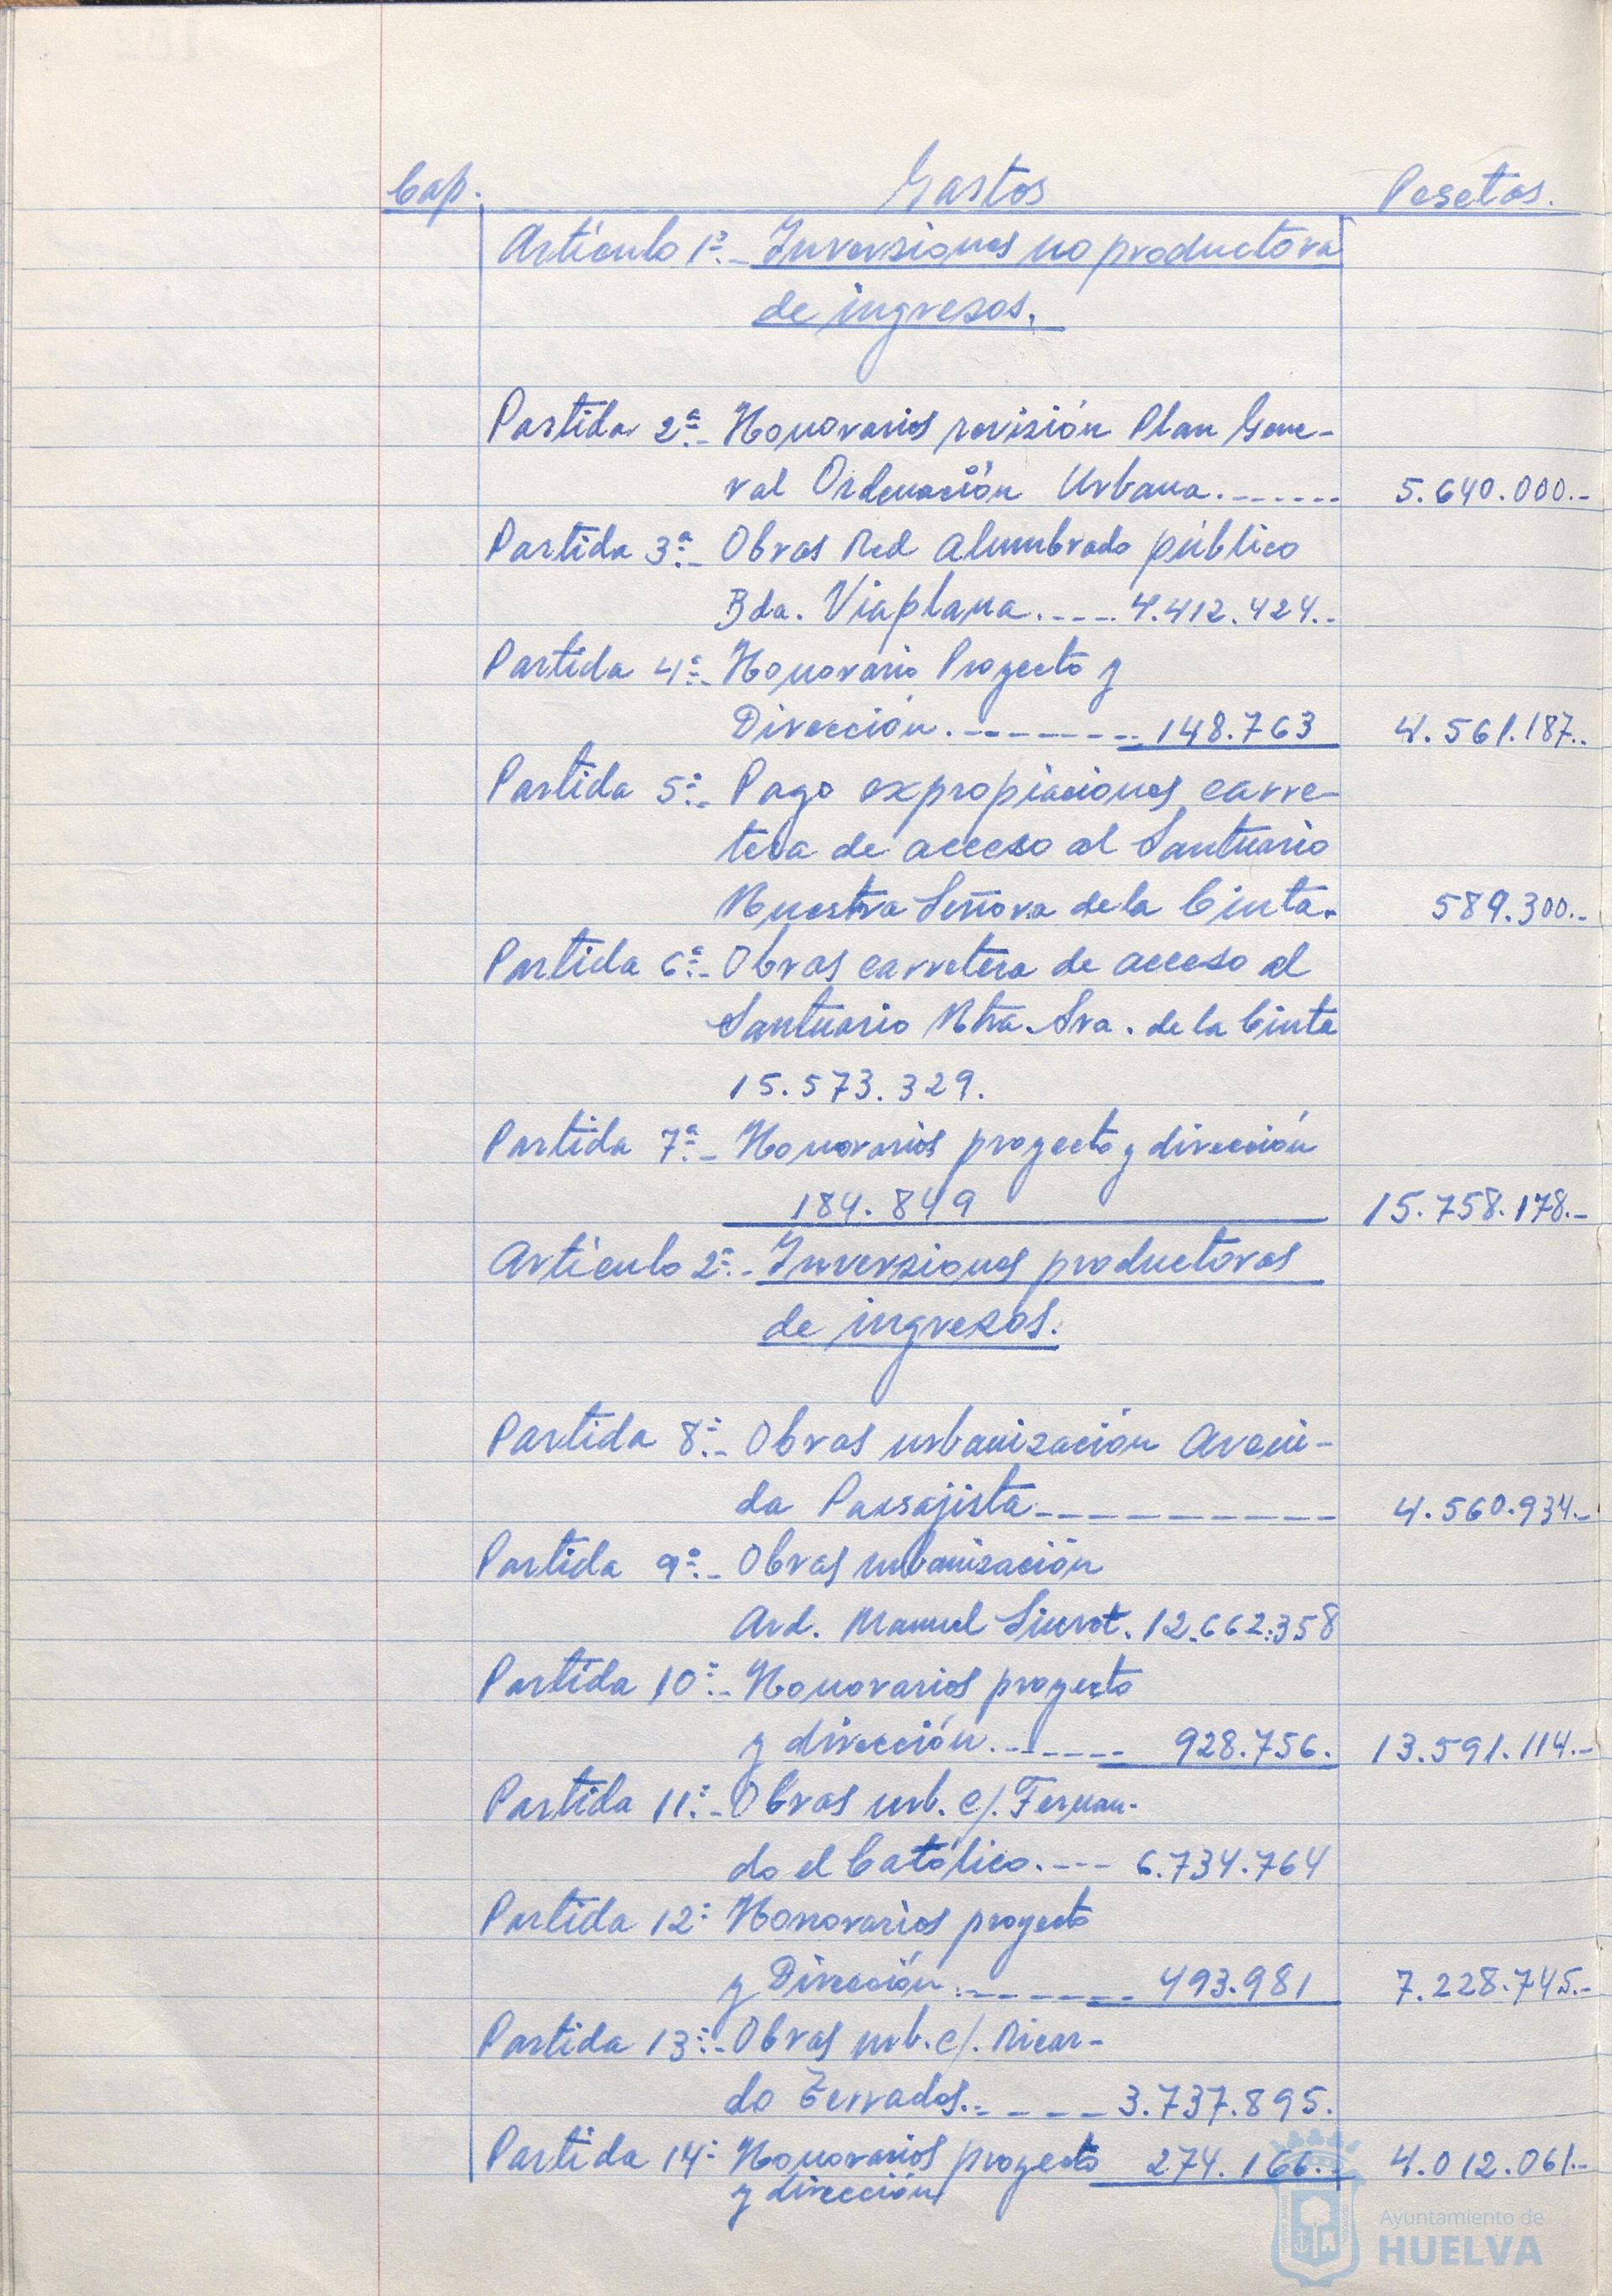 Cap. Gastos Pesetas.
Artículo 1º.- Inversiones no productora
de ingresos.
Partida 2ª.- Honorarios revisión Plan Gene-
ral Ordenación Urbana....... 5.640.000.-
Partida 3ª.- Obras Red alumbrado público
Bda. Viaplana..... 4.412.424.-
Partida 4ª.- Honorario Proyecto y
Dirección......... 148.763 4.561.187.-
Partida 5ª.- Pago expropiaciones carre-
tera de acceso al Santuario
Nuestra Señora de la Cinta. 589.300.-
Partida 6ª.- Obras carretera de acceso al
Santuario Ntra. Sra. de la Cinta
15.573.329.
Partida 7ª.- Honorarios proyecto y dirección
184.849 15.758.178.-
Artículo 2º.- Inversiones productoras
de ingresos.
Partida 8ª.- Obras urbanización Aveni-
da Passajista---------- 4.560.934.-
Partida 9ª.- Obras urbanización
Avd. Manuel Siurot. 12.662.358
Partida 10ª.- Honorarios proyecto
y dirección....... 928.756. 13.591.114.-
Partida 11ª.- Obras urb. c/. Fernan-
do el Católico.--- 6.734.764
Partida 12ª Honorarios proyecto
y Dirección........ 493.981 7.228.745.-
Partida 13ª.- Obras urb. c/. Ricar-
do Terrados.----- 3.737.895.
Partida 14ª Honorarios proyecto 274.166.- 4.012.061.-
y dirección
Ayuntamiento de
HUELVA